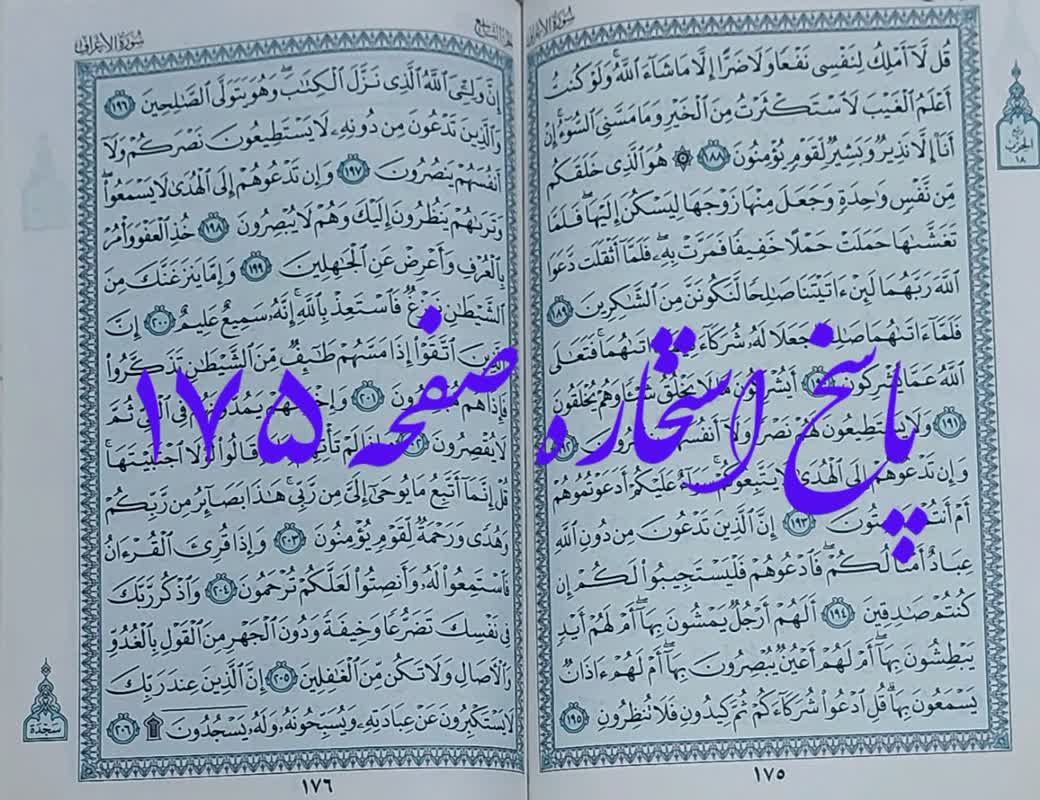 سُورَةُ الأَعْرَافِ
قُل لَّآ أَمْلِكُ لِنَفْسِى نَفْعًا وَلَا ضَرًّا إِلَّا مَا شَآءَ ٱللَّهُ وَلَوْ كُنتُ
أَعْلَمُ ٱلْغَيْبَ لَٱسْتَكْثَرْتُ مِنَ ٱلْخَيْرِ وَمَا مَسَّنِىَ ٱلسُّوٓءُ إِنْ
أَنَا۠ إِلَّا نَذِيرٌ وَبَشِيرٌ لِّقَوْمٍ يُؤْمِنُونَ ١٨٨ ۞ هُوَ ٱلَّذِى خَلَقَكُم
مِّن نَّفْسٍ وَٰحِدَةٍ وَجَعَلَ مِنْهَا زَوْجَهَا لِيَسْكُنَ إِلَيْهَا فَلَمَّا
تَغَشَّىٰهَا حَمَلَتْ حَمْلًا خَفِيفًا فَمَرَّتْ بِهِۦ فَلَمَّآ أَثْقَلَت دَّعَوَا
ٱللَّهَ رَبَّهُمَا لَئِنْ ءَاتَيْتَنَا صَٰلِحًا لَّنَكُونَنَّ مِنَ ٱلشَّٰكِرِينَ ١٨٩
فَلَمَّآ ءَاتَىٰهُمَا صَٰلِحًا جَعَلَا لَهُۥ شُرَكَآءَ فِيمَآ ءَاتَىٰهُمَا فَتَعَٰلَى
ٱللَّهُ عَمَّا يُشْرِكُونَ ١٩٠ أَيُشْرِكُونَ مَا لَا يَخْلُقُ شَيْـًٔا وَهُمْ يُخْلَقُونَ
١٩١ وَلَا يَسْتَطِيعُونَ لَهُمْ نَصْرًا وَلَآ أَنفُسَهُمْ يَنصُرُونَ ١٩٢
وَإِن تَدْعُوهُمْ إِلَى ٱلْهُدَىٰ لَا يَتَّبِعُوكُمْ سَوَآءٌ عَلَيْكُمْ أَدَعَوْتُمُوهُمْ
أَمْ أَنتُمْ صَٰمِتُونَ ١٩٣ إِنَّ ٱلَّذِينَ تَدْعُونَ مِن دُونِ ٱللَّهِ
عِبَادٌ أَمْثَالُكُمْ فَٱدْعُوهُمْ فَلْيَسْتَجِيبُوا۟ لَكُمْ إِن
كُنتُمْ صَٰدِقِينَ ١٩٤ أَلَهُمْ أَرْجُلٌ يَمْشُونَ بِهَآ أَمْ لَهُمْ أَيْدٍ
يَبْطِشُونَ بِهَآ أَمْ لَهُمْ أَعْيُنٌ يُبْصِرُونَ بِهَآ أَمْ لَهُمْ ءَاذَانٌ
يَسْمَعُونَ بِهَا قُلِ ٱدْعُوا۟ شُرَكَآءَكُمْ ثُمَّ كِيدُونِ فَلَا تُنظِرُونِ ١٩٥
١٧٥
ربع
الحزب
١٨
سُورَةُ الأَعْرَافِ
إِنَّ وَلِـِّۧىَ ٱللَّهُ ٱلَّذِى نَزَّلَ ٱلْكِتَٰبَ وَهُوَ يَتَوَلَّى ٱلصَّٰلِحِينَ ١٩٦
وَٱلَّذِينَ تَدْعُونَ مِن دُونِهِۦ لَا يَسْتَطِيعُونَ نَصْرَكُمْ وَلَآ
أَنفُسَهُمْ يَنصُرُونَ ١٩٧ وَإِن تَدْعُوهُمْ إِلَى ٱلْهُدَىٰ لَا يَسْمَعُوا۟
وَتَرَىٰهُمْ يَنظُرُونَ إِلَيْكَ وَهُمْ لَا يُبْصِرُونَ ١٩٨ خُذِ ٱلْعَفْوَ وَأْمُرْ
بِٱلْعُرْفِ وَأَعْرِضْ عَنِ ٱلْجَٰهِلِينَ ١٩٩ وَإِمَّا يَنزَغَنَّكَ مِنَ
ٱلشَّيْطَٰنِ نَزْغٌ فَٱسْتَعِذْ بِٱللَّهِ إِنَّهُۥ سَمِيعٌ عَلِيمٌ ٢٠٠ إِنَّ
ٱلَّذِينَ ٱتَّقَوْا۟ إِذَا مَسَّهُمْ طَٰٓئِفٌ مِّنَ ٱلشَّيْطَٰنِ تَذَكَّرُوا۟
فَإِذَا هُم مُّبْصِرُونَ ٢٠١ وَإِخْوَٰنُهُمْ يَمُدُّونَهُمْ فِى ٱلْغَىِّ ثُمَّ
لَا يُقْصِرُونَ ٢٠٢ وَإِذَا لَمْ تَأْتِهِم بِـَٔايَةٍ قَالُوا۟ لَوْلَا ٱجْتَبَيْتَهَا
قُلْ إِنَّمَآ أَتَّبِعُ مَا يُوحَىٰٓ إِلَىَّ مِن رَّبِّى هَٰذَا بَصَآئِرُ مِن رَّبِّكُمْ
وَهُدًى وَرَحْمَةٌ لِّقَوْمٍ يُؤْمِنُونَ ٢٠٣ وَإِذَا قُرِئَ ٱلْقُرْءَانُ
فَٱسْتَمِعُوا۟ لَهُۥ وَأَنصِتُوا۟ لَعَلَّكُمْ تُرْحَمُونَ ٢٠٤ وَٱذْكُر رَّبَّكَ
فِى نَفْسِكَ تَضَرُّعًا وَخِيفَةً وَدُونَ ٱلْجَهْرِ مِنَ ٱلْقَوْلِ بِٱلْغُدُوِّ
وَٱلْءَاصَالِ وَلَا تَكُن مِّنَ ٱلْغَٰفِلِينَ ٢٠٥ إِنَّ ٱلَّذِينَ عِندَ رَبِّكَ
لَا يَسْتَكْبِرُونَ عَنْ عِبَادَتِهِۦ وَيُسَبِّحُونَهُۥ وَلَهُۥ يَسْجُدُونَ ۩ ٢٠٦
سجدة
١٧٦
پاسخ استخاره صفحه ۱۷۵